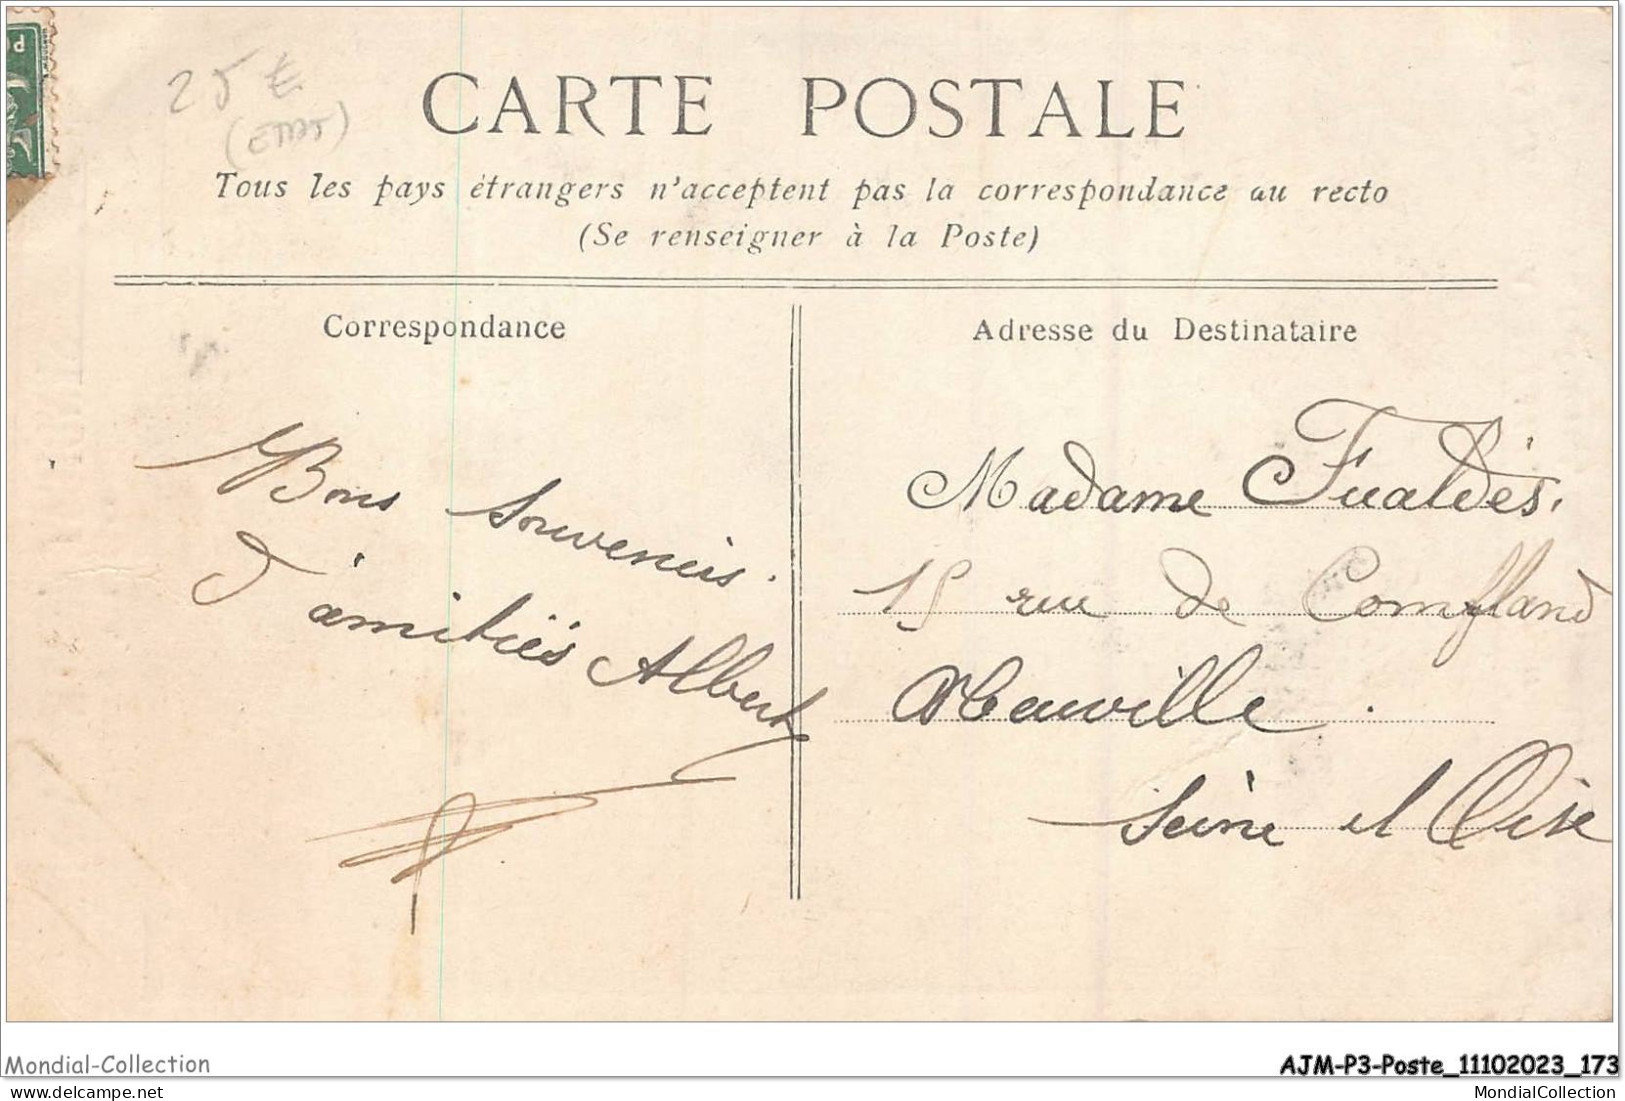 25 €
(ETAT)
CARTE POSTALE
Tous les pays étrangers n'acceptent pas la correspondance au recto
(Se renseigner à la Poste)
Correspondance
Bons Souvenirs
d'amitiés Albert
Adresse du Destinataire
Madame Fualdès.
15 rue de
Seine et Oise
Mondial-Collection
delcampe.net
AJM-P3-Poste_11102023_173
MondialCollection